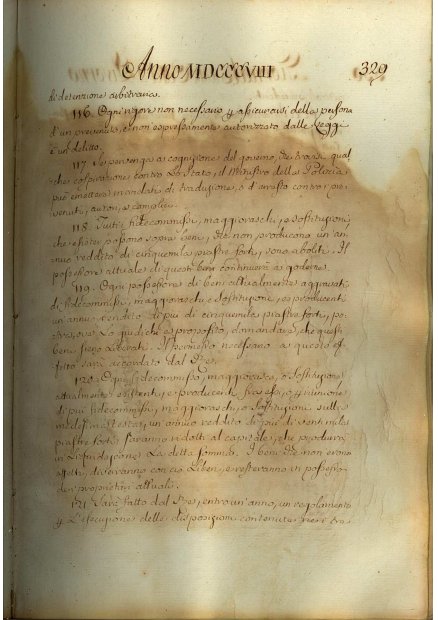 Anno MDCCCVIII 329
di detenzione arbitraria.
116. Ogni rigore non necessario per assicurarsi della persona
d'un prevenuto, e non espressamente autorizzato dalle Legge
è un delitto.
117. Se pervenga a cognizione del governo, che trovisi qual
che cospirazione contro lo stato, il Ministro della Polizia
può emettere mandati di traduzione, e d'arresto contro i pre
venuti, autori, e complici.
118. Tutti i fidecommissi, maggioraschi, e sostituzioni
che esistono sopra beni, che non producono un an
nuo reddito di cinquemila piastre forti, sono aboliti. Il
possessore attuale di questi beni continuerà a goderne.
119. Ogni possessore di beni attualmente aggravati
di fidecommissi, maggioraschi e sostituzione, e producenti
un'annuo rendito di più di cinquemila piastre forti, po
trà, ove lo giudichi a proposito, domandare, che questi
beni sieno liberati. Il permesso necessario a questo ef
fetto sarà accordato dal Re.
120. Ogni fidecommisso, maggiorasco, o sostituzione
attualmente esistente, e producenti per se stesso, o per riunione
di più fidecommissi, maggioraschi, o sostituzioni sulla
medesima testa, un annuo reddito di più di venti mila
piastre forti, saranno ridotti al capitale, che produrrà
la detta somma. I beni, che non erano
diverranno con ciò liberi, e resteranno in possesso
dei proprietari attuali.
121. Sarà fatto dal Re, entro un'anno, un regolamento
per l'esecuzione delle disposizioni contenute nei tre